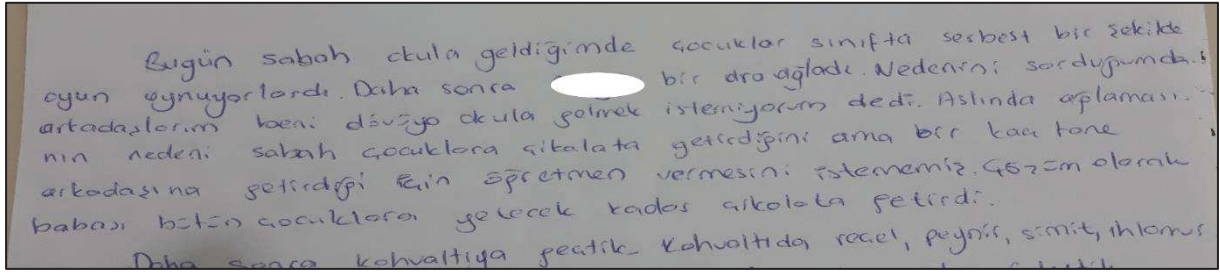 Bugün sabah okula geldiğimde çocuklar sınıfta serbest bir şekilde
oyun oynuyorlardı. Daha sonra bir ara ağladı. Nedenini sorduğumda
arkadaşlarım beni dövüyo okula gelmek istemiyorum dedi. Aslında ağlaması-
nın nedeni sabah çocuklara çikalata getirdiğini ama bir kaç tane
arkadaşına getirdiği için öğretmen vermesini istememiş. Çözüm olarak
babası bütün çocuklara yetecek kadar çikolata getirdi.
Daha sonra kahvaltıya geçtik. Kahvaltıda, reçel, peynir, simit, ıhlamur